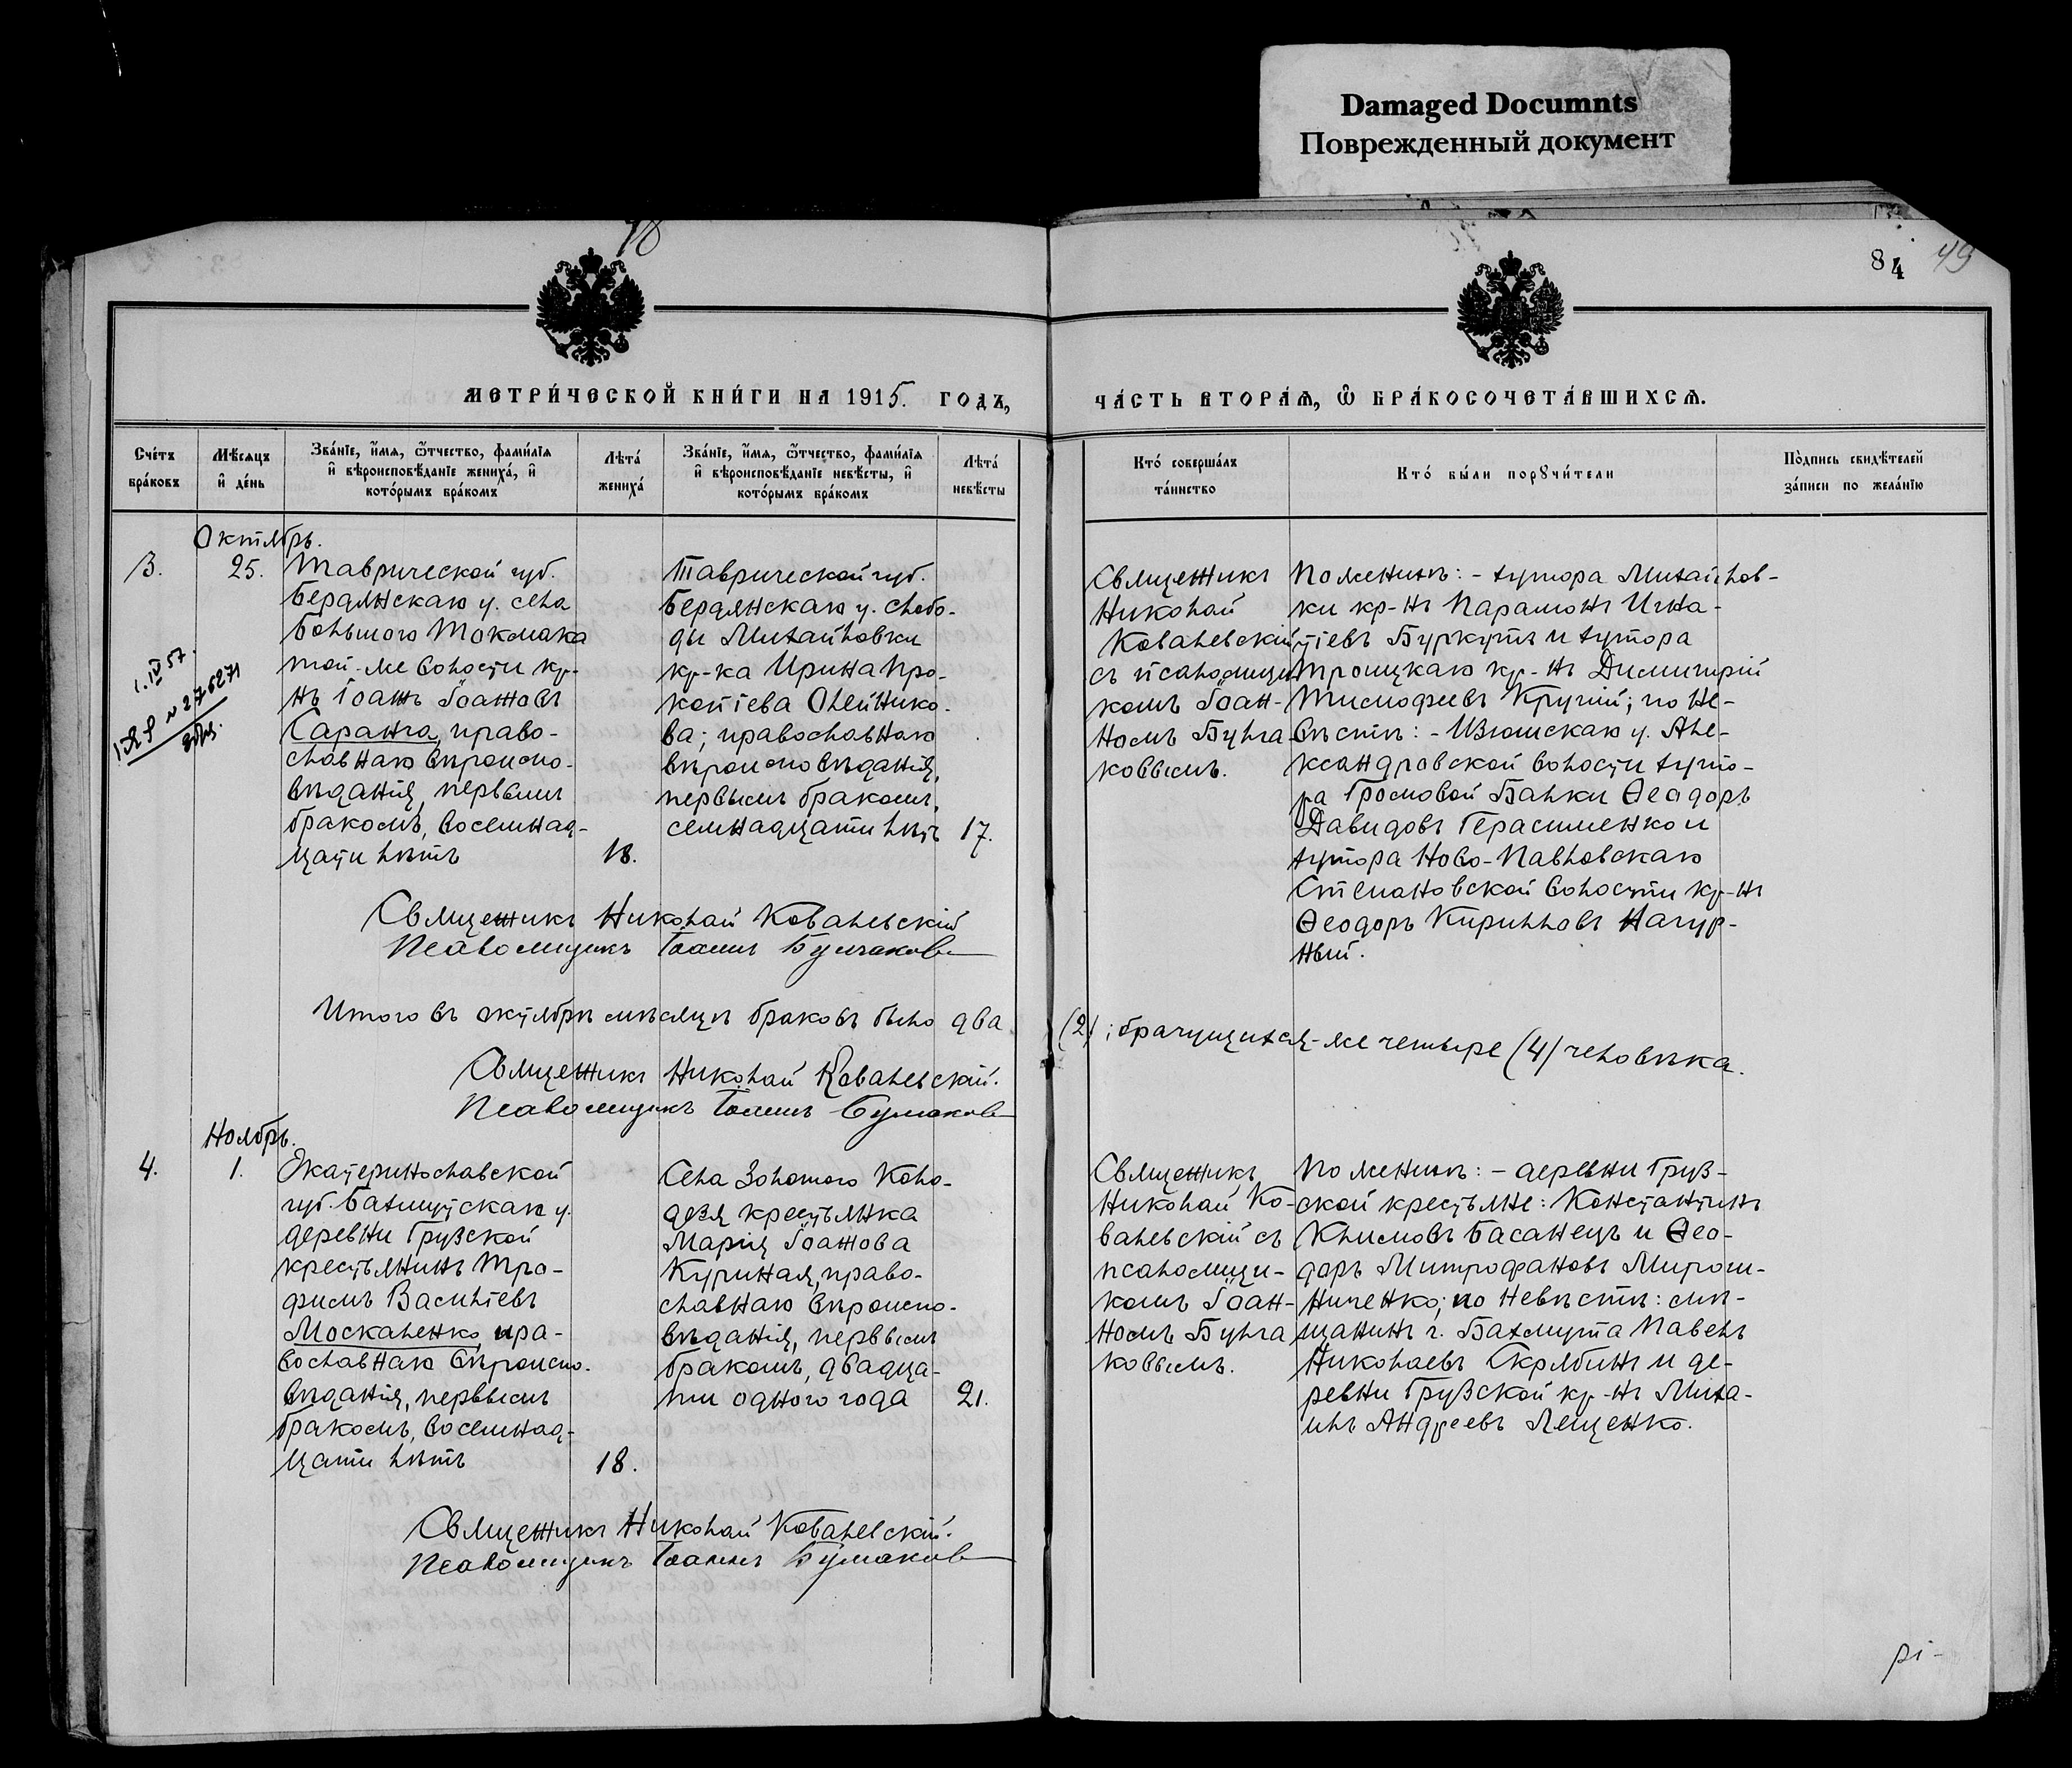 Damaged Documnts
Поврежденный документ
84
49
МЕТРИ́ЧЕСКОЙ КНИ́ГИ НА 1915. ГОДЪ,
ЧА́СТЬ ВТОРА́Ѧ, Ѽ БРА́КОСОЧЕТА́ВШИХСѦ.
Сче́тъ бра́ковъ
Мѣ́сяцъ и҆ де́нь
Зва́нїе, и҆́мя, ѻ҆́тчество, фами́лїя
и҆ вѣроисповѣ́данїе жениха́, и҆
кото́рымъ бра́комъ
Лѣта́ жениха́
Зва́нїе, и҆́мя, ѻ҆́тчество, фами́лїя
и҆ вѣроисповѣ́данїе невѣ́сты, и҆
кото́рымъ бра́комъ
Лѣта́ невѣ́сты
Кто́ соверша́лъ
та́инство
Кто́ бы́ли порꙋчи́тели
По́дпись свидѣ́телей
за́писи по жела́нїю
Октябрь.
3.
25.
Таврической губ.
Бердянскаго у. села
Большого Токмака
той-же волости кр-
нъ Іоаннъ Іоанновъ
Саранча, право-
славнаго вѣроиспо-
вѣданія, первымъ
бракомъ, восемнад-
цати лѣтъ
18.
Таврической губ.
Бердянскаго у. слобо-
ды Михайловки
кр-ка Ирина Про-
копіева Олейнико-
ва; православнаго
вѣроисповѣданія,
первымъ бракомъ,
семнадцати лѣтъ
17.
Священникъ
Николай
Ковалевскій
съ псаломщи-
комъ Іоан-
номъ Булга-
ковымъ.
По женихѣ: - хутора Михайлов-
ки кр-нъ Парамонъ Игна-
тіевъ Буркутъ и хутора
Троицкаго кр-нъ Димитрій
Тимофеевъ Кручій; по не-
вѣстѣ: - Изюмскаго у. Але-
ксандровской волости хуто-
ра Громовой Балки Ѳеодоръ
Давидовъ Герасименко и
хутора Ново-Павловскаго
Степановской волости кр-нъ
Ѳеодоръ Кирилловъ Нагур-
ный.
1.IV 57.
№ 276271
Священникъ Николай Ковалевскій
Псаломщикъ Іоаннъ Булгаковъ
Итого въ октябрѣ мѣсяцѣ браковъ было два (2); брачущихся-же четыре (4) человѣка.
Священникъ Николай Ковалевскій.
Псаломщикъ Іоаннъ Булгаковъ
Ноябрь.
4.
1.
Екатеринославской
губ. Бахмутскаго у.
деревни Грузской
крестьянинъ Тро-
фимъ Васильевъ
Москаленко, пра-
вославнаго вѣроиспо-
вѣданія, первымъ
бракомъ, восемнад-
цати лѣтъ
18.
Села Золотого Коло-
дезя крестьянка
Марія Іоаннова
Куриная, право-
славнаго вѣроиспо-
вѣданія, первымъ
бракомъ, двадца-
ти одного года
21.
Священникъ
Николай Ко-
валевскій съ
псаломщи-
комъ Іоан-
номъ Булга
ковымъ.
По женихѣ: - деревни Груз-
ской крестьяне: Константинъ
Климовъ Басанецъ и Ѳео-
доръ Митрофановъ Мирош-
ниченко; по невѣстѣ: мѣ-
щанинъ г. Бахмута Павелъ
Николаевъ Скрябинъ и де-
ревни Грузской кр-нъ Миха-
илъ Андреевъ Лещенко.
Священникъ Николай Ковалевскій.
Псаломщикъ Іоаннъ Булгаковъ
рі-